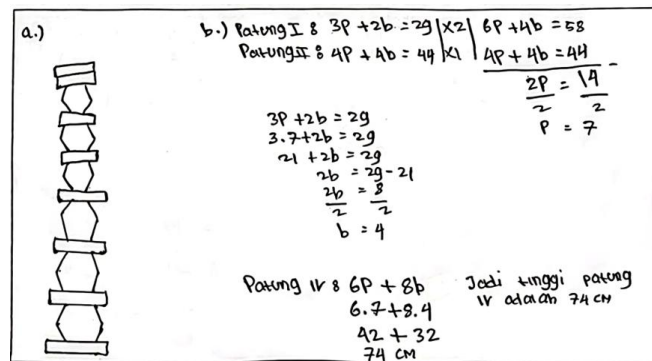 a.)
b.) Patung I : 3P + 2b = 29 | x2 | 6P + 4b = 58
Patung II : 4P + 4b = 44 | x1 | 4P + 4b = 44 -
2P/2 = 14/2
P = 7
3P + 2b = 29
3.7 + 2b = 29
21 + 2b = 29
2b = 29 - 21
2b/2 = 8/2
b = 4
Patung IV : 6P + 8b
6.7 + 8.4
42 + 32
74 CM
Jadi tinggi patung
IV adalah 74 CM